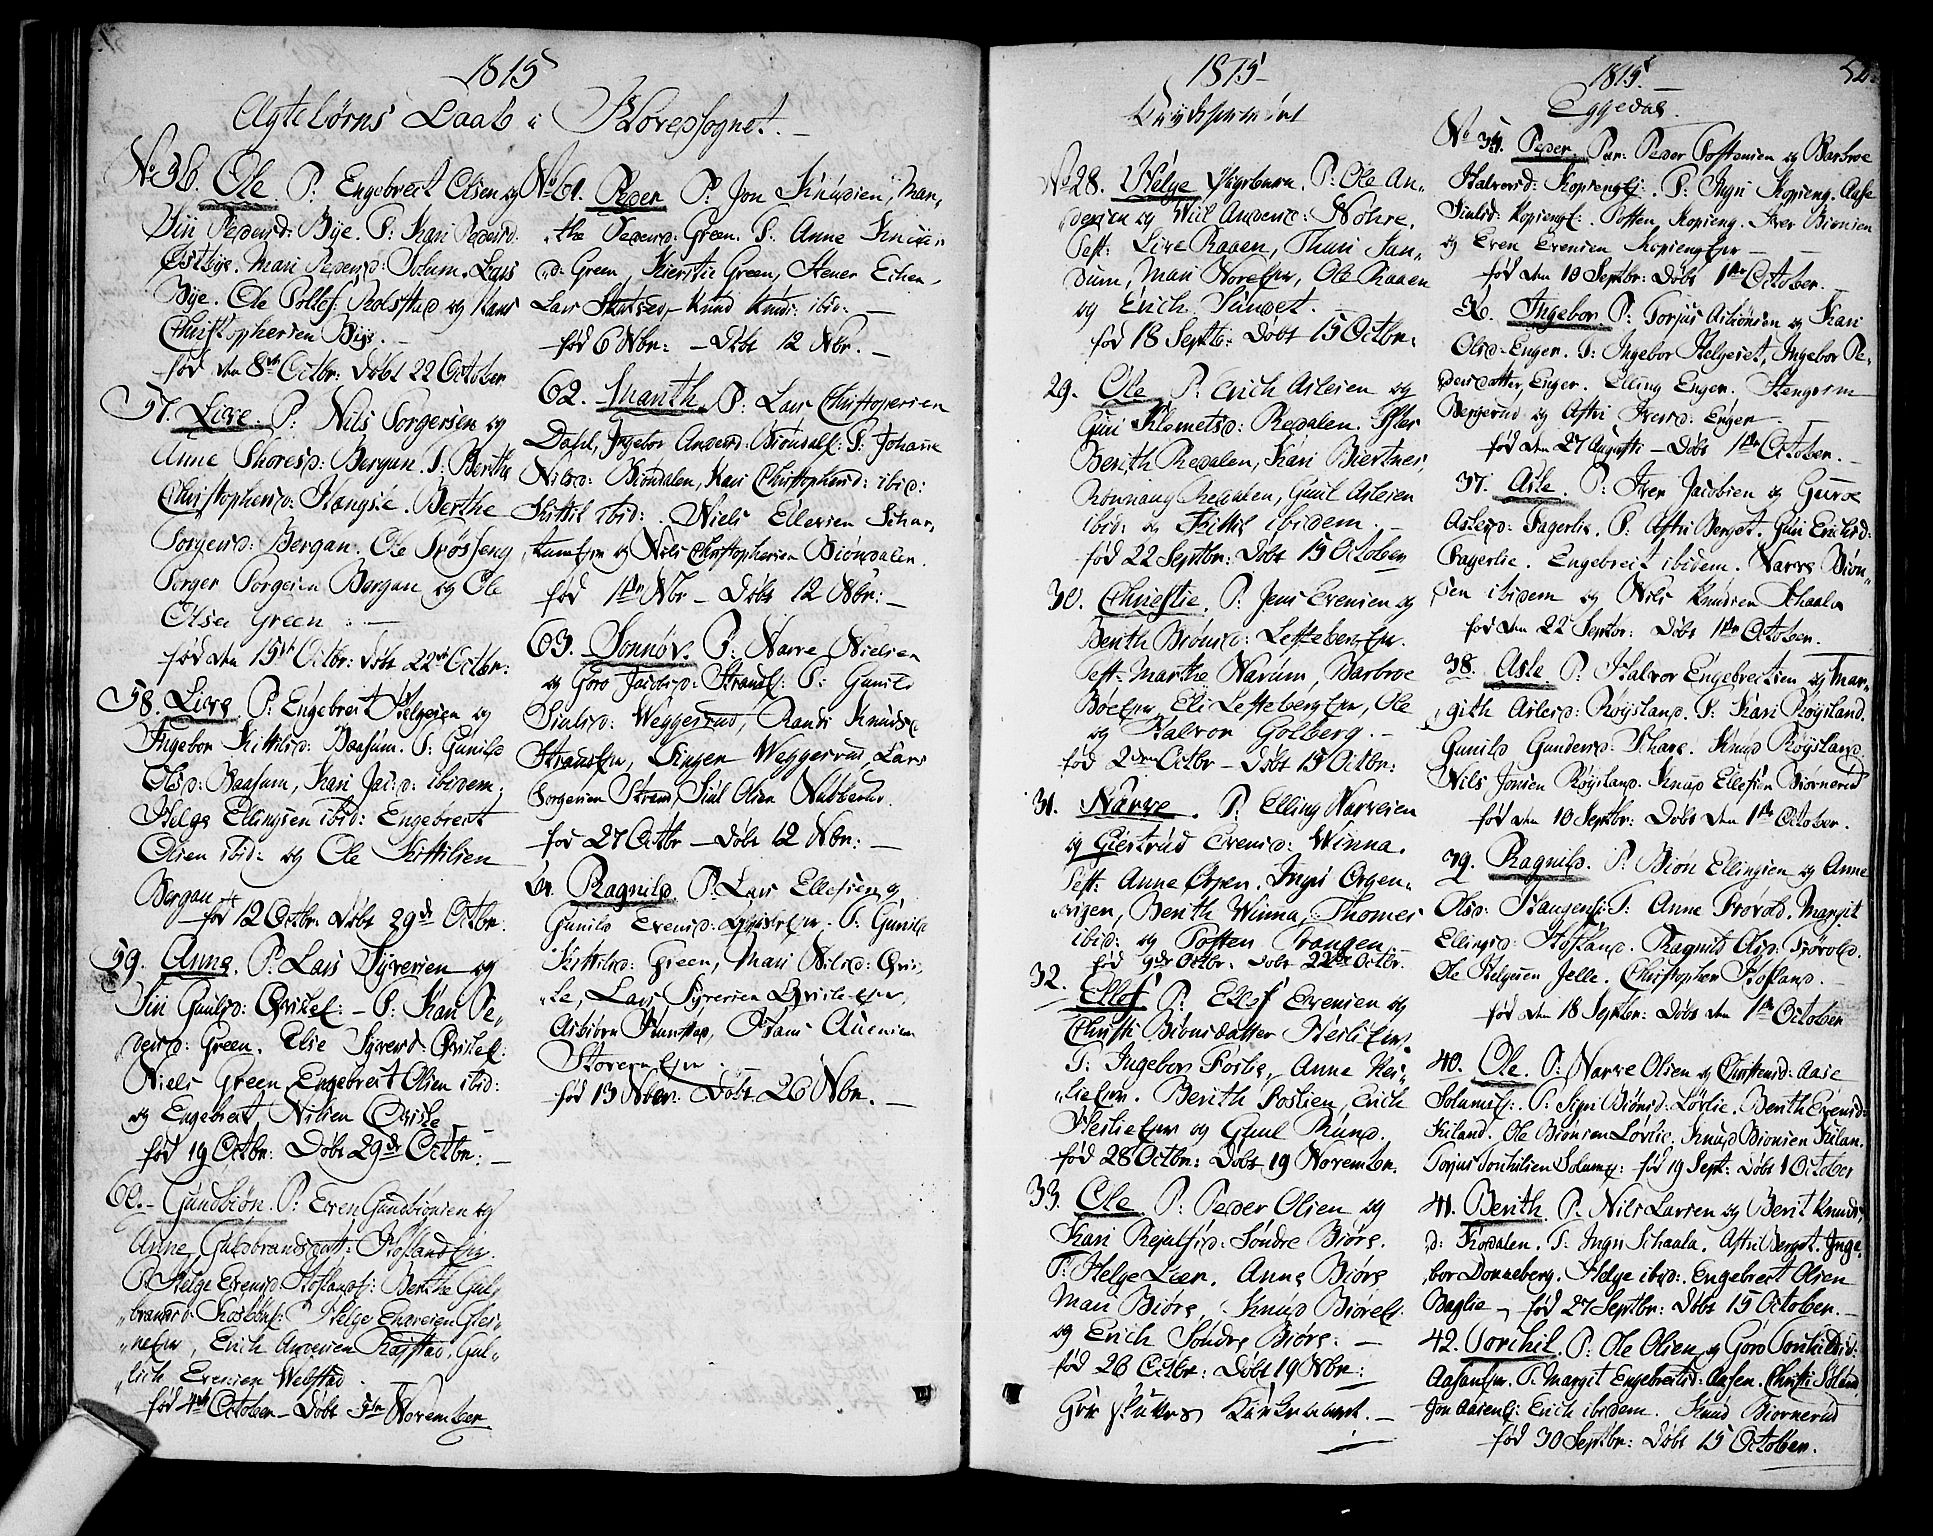 1815
Ægtebørns Daab i Hovedsognet. —
No 56. Ole P: Engebrecht Olsen og
Siri Pedersd: Bye. T: Kari Pedersd:
Østbye. Mari Pedersd: Solum. Lars
Bye. Ole Tollefs: Rolsstad og Hans
Christophersen Bye. —
fød den 8de Octbr: Døbt 22 October
57. Live. P: Nils Torgersen og
Anne Thoresd: Bergan. T: Berthe
Christophersd: Hængsle. Berthe
Torgersd: Bergan. Ole Trøsseng
Torger Torgersen Bergan og Ole
Olsen Green : —
fød den 15de Octbr: døbt 22de Octbr:
58. Live P: Engebrect Helgesen og
Ingebor Kittilsd: Baasum. T: Gunild
Olsd: Baasum, Kari Jacsd: ibidem,
Helge Ellingsen ibid: Engebrect
Olsen ibid: og Ole Kittilsen
Bergan
fød 12 Octbr: Døbt 29de Octbr:
59. Anne. P: Lars Syversen og
Siri Gulsd: Qvislef: — T: Kari Pe„
„dersd: Green. Else Syversd: Qvislef:
Niels Green, Engebrect Olsen ibid:
og Engebrect Nilsen Qvisle —
fød 19 Octbr: Døbt 29de Octbr: —
60. — Gundbiøn. P: Even Gundbiønsen og
Anne Guldbrandsdatt: Hoflandeier.
T: Helge Evensd: Hoflandsf: Berthe Gul„
„brandsd: P Helge Enersen Glei„
„neeier, Erich Andersen Raastad, Gul„
„lich Evensen Webstad.
fød 4de October — Døbt 5te November
No 61. Peder P: Jon Knudsen, Mar„
„the Pedersd: Green. T: Anne Knuds„
„d: Green, Kierstie Green, Stener Echen,
Lars Skutsed, Knud Knuds: ibid: —
fød 6 Nbr: — Døbt 12 Nbr. —
62. Knanth. P: Lars Christophersen
Dahl, Ingebor Andersd: Biøndalf: T: Johanne
Nilsd: Biøndalen, Kari Christophersd: ibid:
Kittil ibid: Niels Ellevsen
og Nils Christophersen Biøndalen.
fød 1ste Nbr — Døbt 12 Nbr: —
63. Sønnøv. P: Narve Nielsen
og Goro Jacobsd: Strandf: T: Gunild
Siulsd: Weggersrud, Randi Knudsd:
Strandeier, Singer Weggersrud, Lars
Torgersen Strand, Siul Olsen Nubberud.
fød 27 Octbr — Døbt 12 Nbr: —
64. Ragnild P: Lars Ellefsen og
Gunild Evensd: Qvisleeier. T: Gunild
Kittilsd: Green, Mari Nilsd: Qvis„
„le, Lars Syversen Qvisle eier,
Asbiørn Hamstad, Hans Auensen
Storeeneier
fød 13 Nbr: Døbt 26 Nbr. —
1815 —
Krydsherred
No 28. Helge P: Ole An„
„dersen og Andersd: Nøhre.
Test: Live Raaen, Thuri San„
dum, Mari Noreeier, Ole Raaen
og Erich Sundet.
fød 18 Septb: Døbt 15 Octbr:
29. Ole P: Erich Aslesen og
Guri Klemetsd: Redalen. Test:
Berith Redalen, Kari Biertnes,
Rønnaug Redalen, Gulil Aslesen
ibid: og Kittil ibidem. —
fød 22 Septbr: Døbt 15 October
30. Christie. P: Jens Evensen og
Berith Biønsd: Lesteberteier.
Test: Marthe Narum, Barbroe
Bøeeier, Eli Lesteberteier, Ole
og Halvor Golberg. —
fød 2den Octbr — Døbt 15 Octbr:
31. Narve. P: Elling Narvesen
og Giertrud Evensd: Winna.
Test: Anne Ørgen. Ingri Ørgen„
„vigen, Berith Winna, Thomes
ibid: og Tosten Trangen. —
fød 9de Octbr: døbt 22de Octbr.
32. Ellof P: Ellef Evensen og
Christi Biønsdatter Heslieier.
T: Ingebor Foslie, Anne Hes„
„lieeier. Berith Foslien, Erich
Heslieeier og Gulul Rund.
fød 28 Octbr: Døbt 19 November.
33. Ole. P: Peder Olsen og
Kari Rejalfsd: Søndre Biøre.
T: Helge Leer. Anne Biøre
Mari Biøre, Knud Biøref:
og Erich Søndre Biøre: —
fød 26 Octbr: Døbt 19 Nbr:
Her sluttes Kirkeaaret. —
52
1815. —
Eggedal.
No 35. Peder. Par: Peder Tostensen og Barbroe
Halvorsd: Kopsengf:. T: Ingri Kopseng. Aase
Siulsd: Kopsengf. Tosten Kopseng. Iver Biønsen
og Even Evensen Kopsengeier — —
fød den 10 Septbr: Døbt 1ste October.
36. Ingebor. P: Torjus Asbiønsen og Kari
Olsd: Enger. T: Ingebor Helgeset, Ingebor Pe„
„dersdatter, Enger. Elling Enger. Stengrim
Bergerud og Astri Iversd: Enger —
fød den 27 Augusti — Døbt 1ste October. —
37. Asle. P: Iver Jacobsen og Guroe
Aslesd: Fagerlie. T: Astri Berget. Guri Erichsd:
Fagerlie. Engebrect ibidem. Narve Biøn„
„sen ibidem og Nils Knudsen Schaala
fød den 22 Septbr: Døbt 1ste October.
38. Asle P: Halvor Engebrectsen og Mar„
„gith Aslesd: Røysland. T: Kari Røysland.
Gunild Gundersd: Schare. Knud Røysland,
Nils Jonsen Røysland. Knud Ellefsen Biørnerud
fød den 10 Septbr: Døbt den 1ste October.
39. Ragnild. P: Biøn Ellingsen og Anne
Olsd: Haugenf: T: Anne Frøvold. Margit
Ellingsd: Hofland. Ragnild Olsd: Frøvold.
Ole Helgesen Jelle. Christopher Hofland. —
fød den 18 Septbr: Døbt den 1ste October
40. Ole. P: Narve Olsen og Christensd: Aase
Solumsf:. T: Sigri Biønsd: Løvlie. Berith Evensd:
Kiland. Ole Biønsen Løvlie. Knud Biønsen Kilan.
Torjus Torchilsen Solumsf: fød 19 Sept: Døbt 1 October
41. Berith P: Nils Larsen og Berit Knuds„
„d: Frødalen. T: Ingri Schaala. Astri Berget. Inge„
„bor Donneberg. Helge ibid:. Engebrect Olsen
Baglie —, fød 27 Septbr: Døbt 15 October. —
42. Torchil. P: Ole Olsen og Goro Torchildsd:
Aasaneier. T: Margit Engebrectsd: Aasen. Christi Solum
Jon Aasenf: Erich ibidem. Knud Biørnerud
fød 30 Septbr: Døbt 15 October.